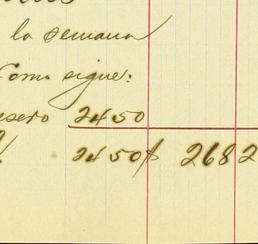 la semana
Como sigue:
2450
2450 $ 2682